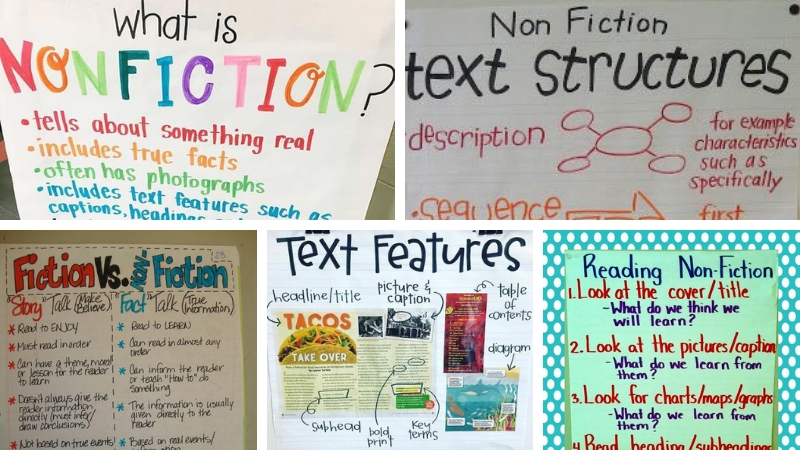 what is
NONFICTION?
• tells about something real
• includes true facts
• often has photographs
• includes text features such as
captions, headings
Non Fiction
text structures
description
for example
characteristics
such as
specifically
• sequence
first
Fiction Vs. NON-Fiction
"Story" Talk (Make Believe)
"Fact" Talk (True Information)
* Read to ENJOY
* Must read in order
* Can have a theme, moral
or lesson for the reader
to learn
* Doesn't always give the
reader information
directly (must infer/
draw conclusions)
* Not based on true events/
* Read to LEARN
* Can read in almost any
order
* Can inform the reader
or teach "HOW to" do
something
* The information is usually
given directly to the
reader
* Based on real events/
Text Features
headline/title
picture &
caption
table
of
contents
diagram
TACOS
TAKE OVER
subhead
bold
print
key
terms
Reading Non-Fiction
1. Look at the cover/title
- What do we think we
will learn?
2. Look at the pictures/caption
- What do we learn from
them?
3. Look for charts/maps/graphs
- What do we learn from
them?
4. Read heading/subheadings